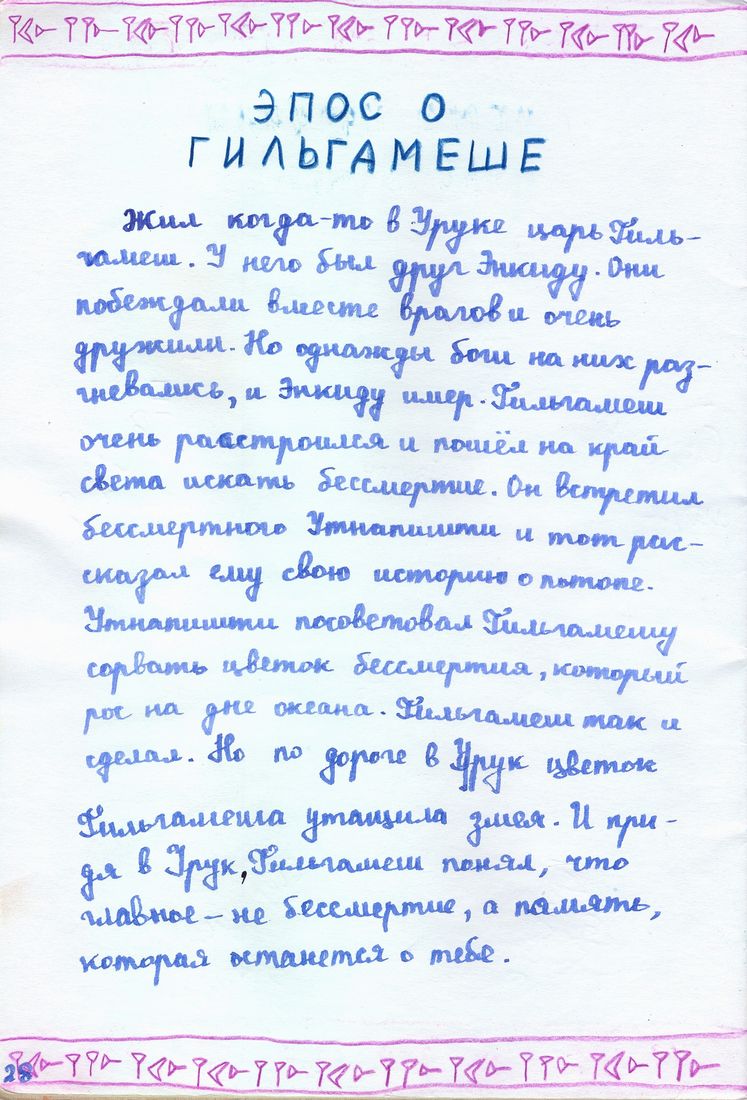 ЭПОС О
ГИЛЬГАМЕШЕ
Жил когда-то в Уруке царь Гиль-
гамеш. У него был друг Энкиду. Они
побеждали вместе врагов и очень
дружили. Но однажды боги на них раз-
гневались, и Энкиду умер. Гильгамеш
очень расстроился и пошёл на край
света искать бессмертие. Он встретил
бессмертного Утнапишти и тот рас-
сказал ему свою историю о потопе.
Утнапишти посоветовал Гильгамешу
сорвать цветок бессмертия, который
рос на дне океана. Гильгамеш так и
сделал. Но по дороге в Урук цветок
Гильгамеша утащила змея. И при-
дя в Урук, Гильгамеш понял, что
главное – не бессмертие, а память,
которая останется о тебе.
28